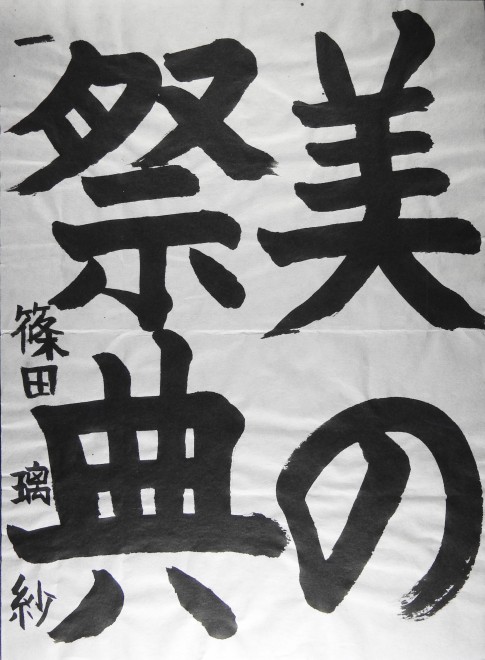 美の
祭典
一 篠田 璃紗